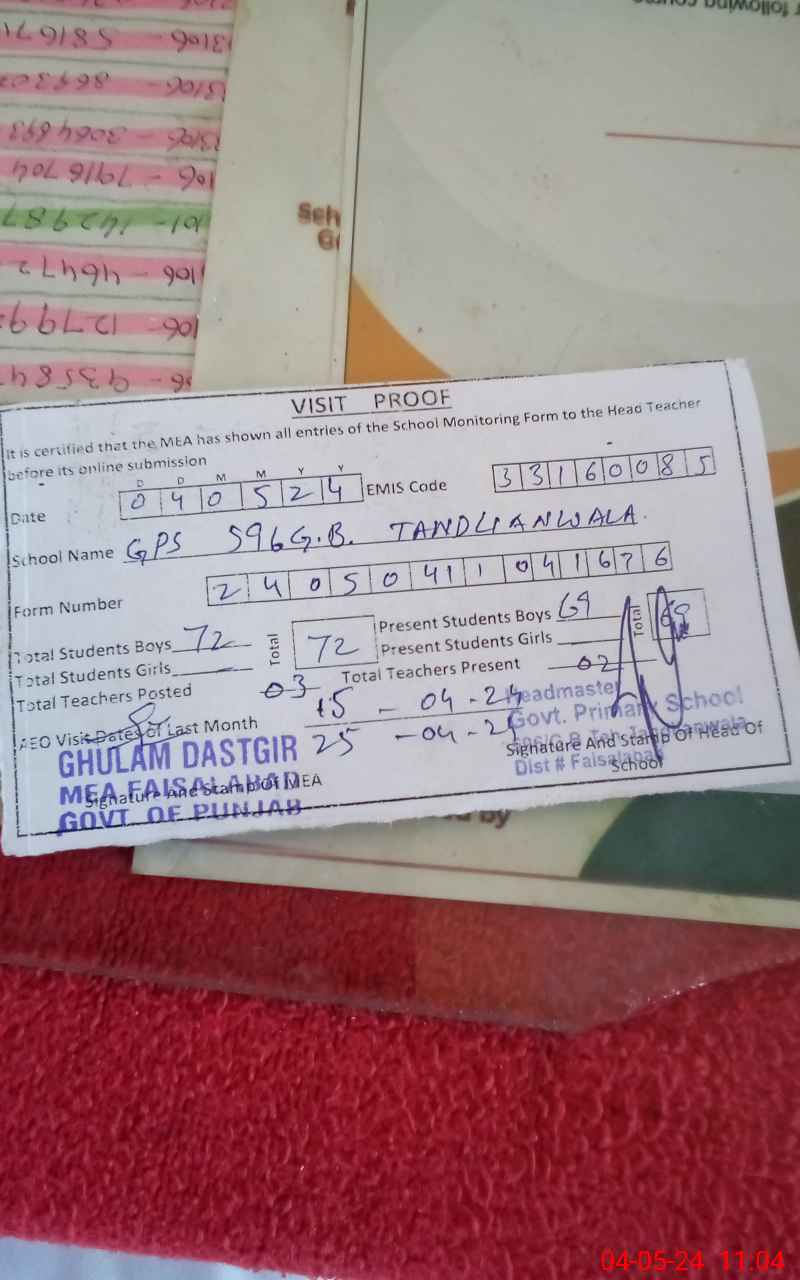 r following cours
13106 - 581671
13106 - 869302
13106 - 3064893
106 - 7916704
101 - 142987
106 - 46472
106 - 12799
06 - 93584
Sch
G
VISIT PROOF
It is certified that the MEA has shown all entries of the School Monitoring Form to the Head Teacher
before its online submission
D D M M Y Y
Date 0 4 0 5 2 4 EMIS Code 3 3 1 6 0 0 8 5
School Name GPS 596 G.B. TANDLIANWALA.
Form Number 2 4 0 5 0 4 1 1 0 4 1 6 7 6
Total Students Boys 72 Total 72 Present Students Boys 69 Total 69
Total Students Girls Present Students Girls
Total Teachers Posted 03 Total Teachers Present 02
AEO Visit Dates of Last Month 15 - 04 - 24
25 - 04 - 24
GHULAM DASTGIR
MEA FAISALABAD
GOVT OF PUNJAB
Signature And Stamp Of MEA
Headmaster
Govt. Primary School
Dist # Faisalabad
Signature And Stamp Of Head Of
School
by
04-05-24 11:04